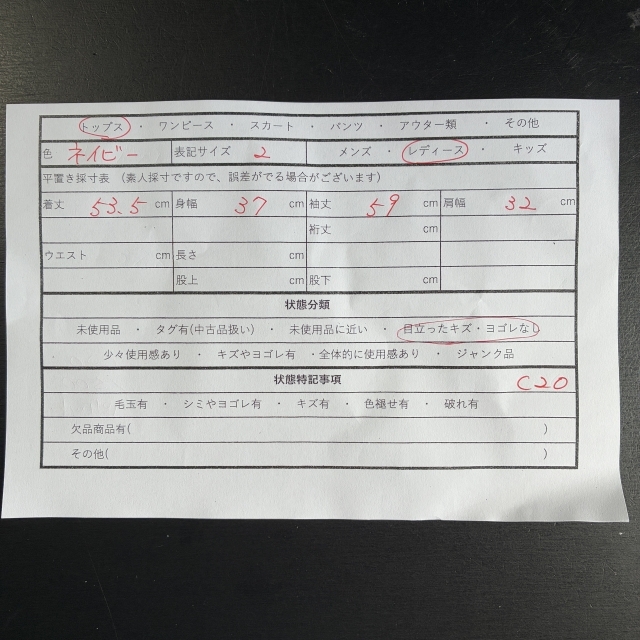 トップス ・ ワンピース ・ スカート ・ パンツ ・ アウター類 ・ その他
色 ネイビー 表記サイズ 2 メンズ ・ レディース ・ キッズ
平置き採寸表 （素人採寸ですので、誤差がでる場合がございます）
着丈 53.5 cm 身幅 37 cm 袖丈 59 cm 肩幅 32 cm
裄丈 cm
ウエスト cm 長さ cm
股上 cm 股下 cm
状態分類
未使用品 ・ タグ有(中古品扱い) ・ 未使用品に近い ・ 目立ったキズ・ヨゴレなし
少々使用感あり ・ キズやヨゴレ有 ・全体的に使用感あり ・ ジャンク品
状態特記事項 C20
毛玉有 ・ シミやヨゴレ有 ・ キズ有 ・ 色褪せ有 ・ 破れ有
欠品商品有( )
その他( )